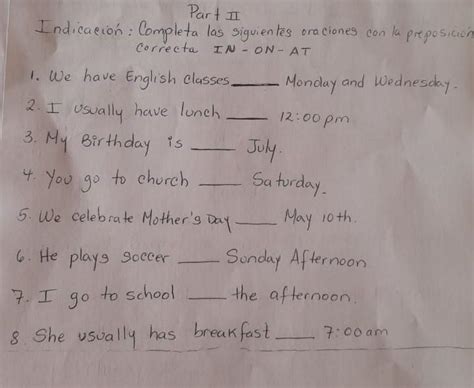 Part II
Indicación: Completa las siguientes oraciones con la preposición
correcta IN - ON - AT
1. We have English classes ______ Monday and Wednesday.
2. I usually have lunch ______ 12:00 pm
3. My Birthday is ______ July.
4. You go to church ______ Saturday.
5. We celebrate Mother's Day ______ May 10th.
6. He plays soccer ______ Sunday Afternoon
7. I go to school ______ the afternoon.
8 She usually has breakfast ______ 7:00 am